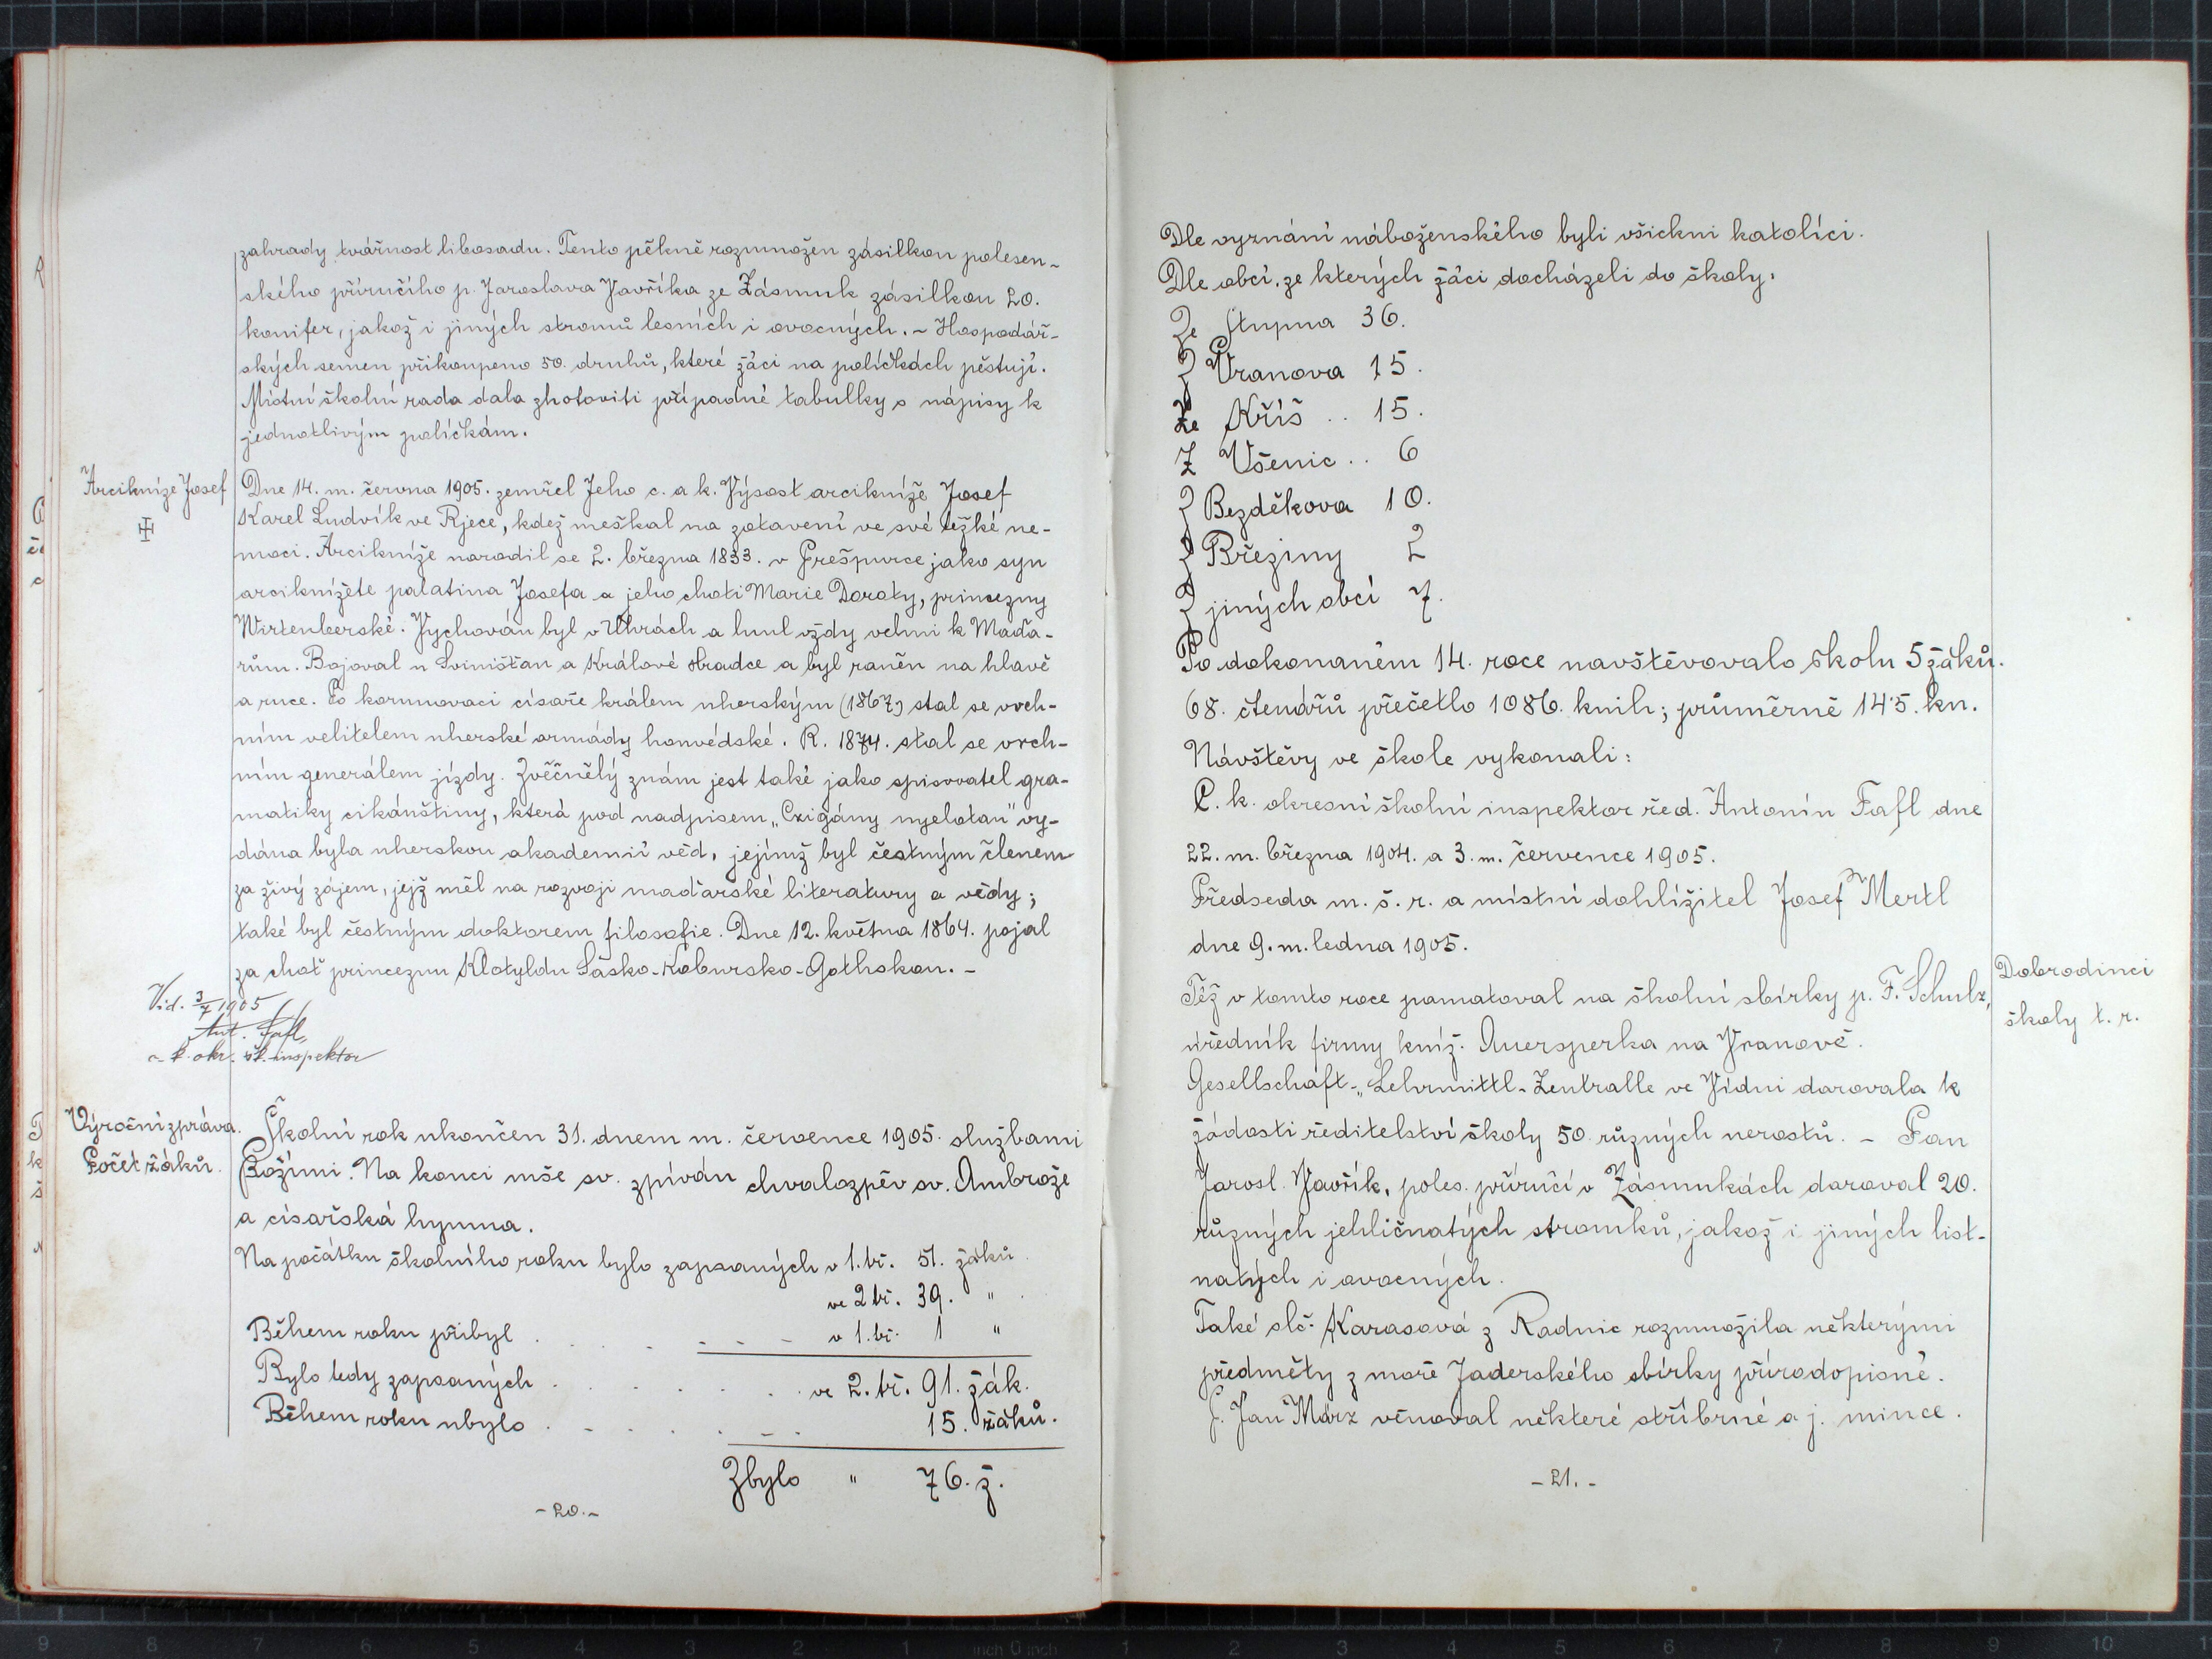 zahrady tvářnost libosadu. Tento pěkně rozmnožen zásilkou polesen-
ského příručího p. Jaroslava Vavříka ze Zásmuk zásilkou 20.
konifer, jakož i jiných stromů lesních i ovocných. ~ Hospodář-
ských semen přikoupeno 50. druhů, které žáci na políčkách pěstují.
Místní školní rada dala zhotoviti případné tabulky s nápisy k
jednotlivým políčkám.
Arcikníže Josef
Dne 14. m. června 1905. zemřel Jeho c. a k. Výsost arcikníže Josef
Karel Ludvík ve Rjece, kdež meškal na zotavení ve své těžké ne-
moci. Arcikníže narodil se 2. března 1833. v Prešpurce jako syn
arciknížete palatina Josefa a jeho choti Marie Doroty, princezny
Wirtenberské. Vychován byl v Uhrách a lnul vždy velmi k Maďa-
rům. Bojoval u Sviništan a Králové Hradce a byl raněn na hlavě
a ruce. Po korunovaci císaře králem uherským (1867) stal se vrch-
ním velitelem uherské armády honvédské. R. 1874. stal se vrch-
ním generálem jízdy. Zvěčnělý znám jest také jako spisovatel gra-
matiky cikánštiny, která pod nadpisem „Czigány nyelotan" vy-
dána byla uherskou akademií věd, jejímž byl čestným členem
za živý zájem, jejž měl na rozvoji maďarské literatury a vědy;
také byl čestným doktorem filosofie. Dne 12. května 1864. pojal
za choť princeznu Klotyldu Sasko-Kobursko-Gothskou. -
Vid. 3/7 1905
Ant. Fafl,
c. k. okr. šk. inspektor
Výroční zpráva.
Počet žáků.
Školní rok ukončen 31. dnem m. července 1905. službami
Božími. Na konci mše sv. zpíván chvalozpěv sv. Ambrože
a císařská hymna.
Na počátku školního roku bylo zapsaných v 1. tř. 51. žáků
ve 2 tř. 39. "
Během roku přibyl . . . . - - - v 1. tř. 1 "
Bylo tedy zapsaných . . . . . . . . ve 2. tř. 91. žák.
Během roku ubylo . . . . . - . 15. žáků.
Zbylo " 76. ž.
-20.-
Dle vyznání náboženského byli všickni katolíci.
Dle obcí, ze kterých žáci docházeli do školy.
Ze Stupna 36.
Z Vranova 15.
Ze Kříš .. 15.
Z Všenic .. 6
Z Bezděkova 10.
Z Březiny 2
Z jiných obcí 7.
Po dokonaném 14. roce navštěvovalo školu 5 žáků.
68. čtenářů přečetlo 1086. knih; průměrně 14·5. kn.
Návštěvy ve škole vykonali:
C. k. okresní školní inspektor řed. Antonín Fafl dne
22. m. března 1904. a 3. m. července 1905.
Předseda m. š. r. a místní dohlížitel Josef Mertl
dne 9. m. ledna 1905.
Dobrodinci
školy t. r.
Též v tomto roce pamatoval na školní sbírky p. F. Schulz,
úředník firmy kníž. Auersperka na Vranově.
Gesellschaft-„Lehrmittl-Zentralle ve Vídni darovala k
žádosti ředitelství školy 50. různých nerostů. - Pan
Jarosl. Vavřík, poles. příručí v Zásmukách daroval 20.
různých jehličnatých stromků, jakož i jiných list-
natých i ovocných.
Také slč. Karasová z Radnic rozmnožila některými
předměty z moře Jaderského sbírky přírodopisné.
P. Jan März věnoval některé stříbrné a j. mince.
-21.-